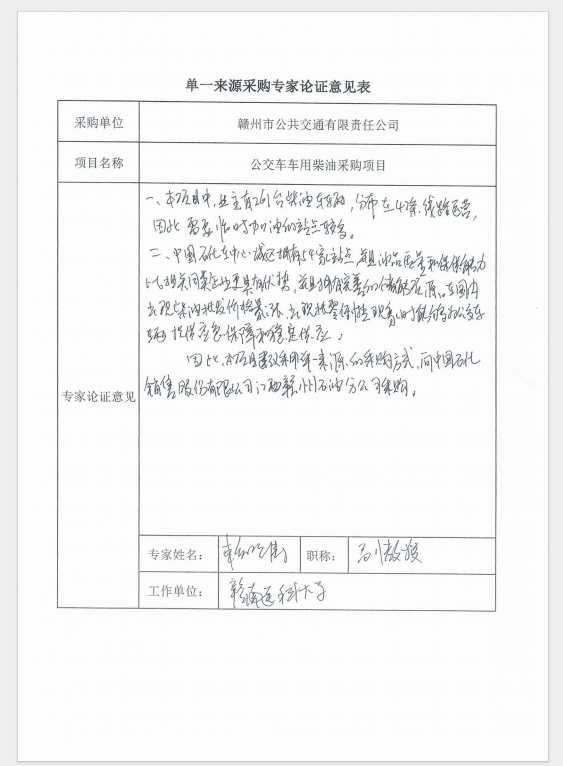 单一来源采购专家论证意见表
采购单位 赣州市公共交通有限责任公司
项目名称 公交车车用柴油采购项目
专家论证意见
一、本项目中,业主有261台柴油车辆,分布在42条线路运营,
因此需要临时加油的站点较多。
二、中国石化在中心城区拥有54家站点,并且油品质量和保供能力
比相关同类企业更具有优势,并且拥有完善的储能资源。在国内
出现柴油批发价格暴涨、出现 情 时能够为公交
车辆提供应急保障和稳定供应。
因此,本项目建议采用单一来源的采购方式,向中国石化
销售股份有限公司江西赣州石油分公司采购。
专家姓名: 职称: 副教授
工作单位: 赣南医科大学